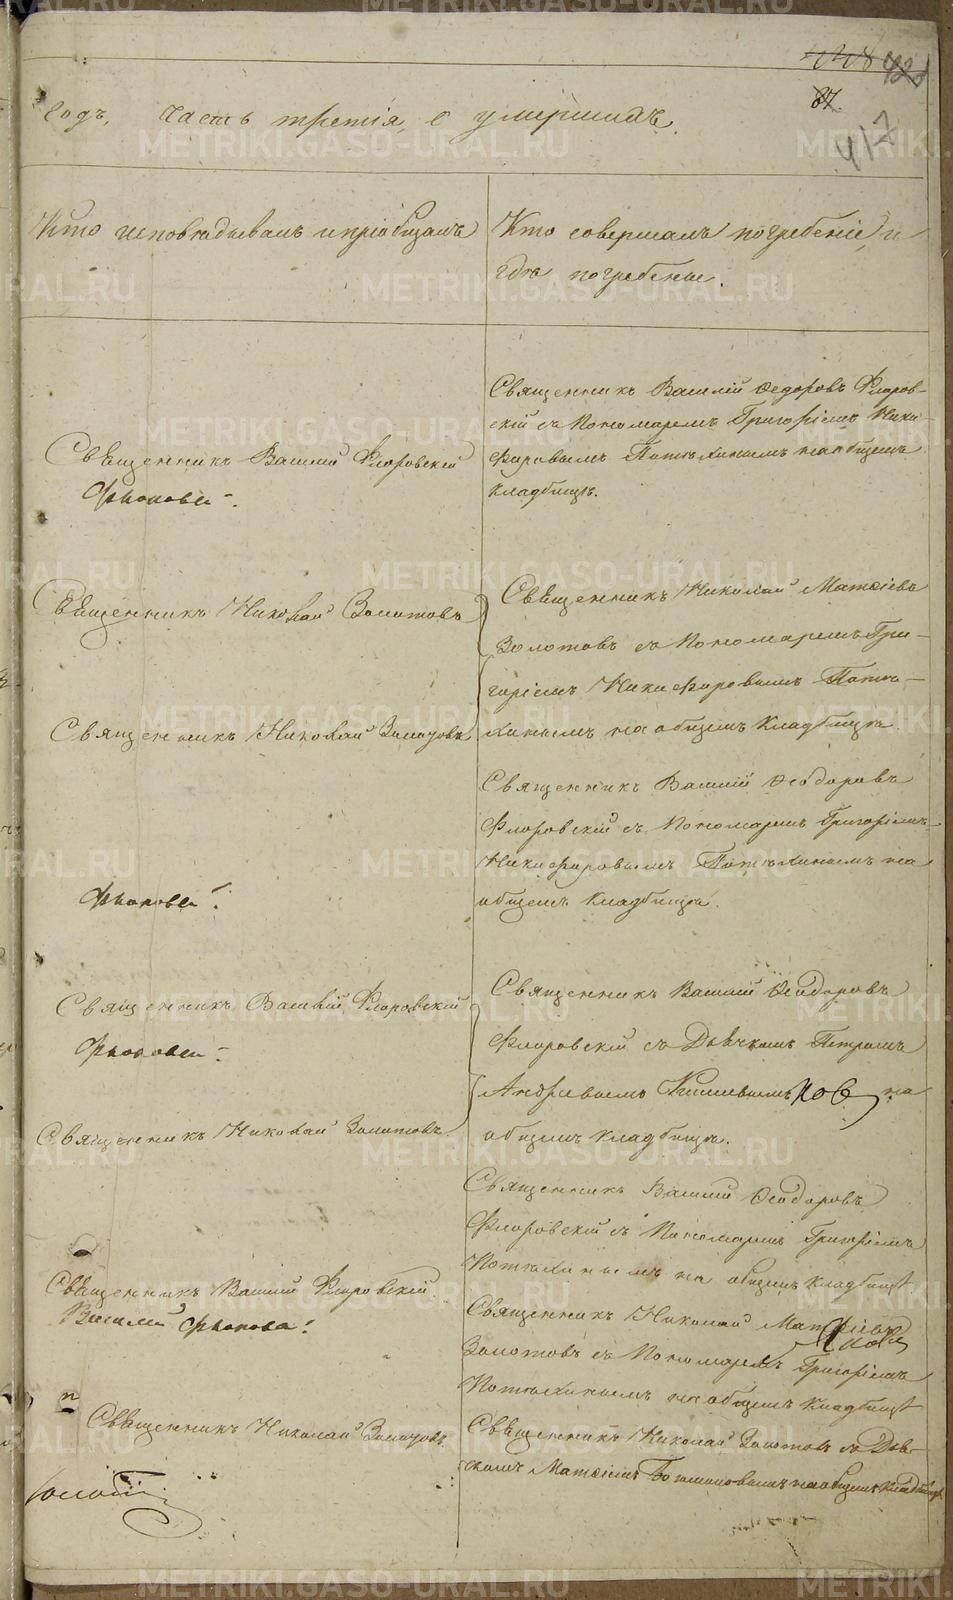 428
87.
417
Годъ, часть третія, о умершихъ.
Кто исповѣдывалъ и пріобщалъ
Кто совершалъ погребеніе и
гдѣ погребены.
Священникъ Василій Флоровскій
Священникъ Василій Ѳедоровъ Флоров-
скій съ Пономаремъ Григоріемъ Ники-
форовымъ Потѣхинымъ на общемъ
кладбищѣ.
Священникъ Николай Золотовъ
Священникъ Николай Золотовъ
Священникъ Николай Матѳіевъ
Золотовъ съ Пономаремъ Гри-
горіемъ Никифоровымъ Потѣ-
хинымъ на общемъ кладбищѣ.
Священникъ Василій Ѳеодоровъ
Флоровскій съ Пономаремъ Григоріемъ
Никифоровымъ Потѣхинымъ на
общемъ кладбищѣ.
Священникъ Василій Флоровскій
Священникъ Николай Золотовъ
Священникъ Василій Ѳеодоровъ
Флоровскій съ Дьячкомъ Петромъ
Андреевымъ на
общемъ кладбищѣ.
Священникъ Василій Флоровскій
Василій
Священникъ Василій Ѳеодоровъ
Флоровскій съ Пономаремъ Григоріемъ
Потѣхинымъ на общемъ кладбищѣ
Священникъ Николай Матѳіевъ
Золотовъ съ Пономаремъ Григоріемъ
Потѣхинымъ на общемъ кладбищѣ
Священникъ Николай Золотовъ
Священникъ Николай Золотовъ съ Дьяч-
комъ Матѳіемъ на общемъ кладбищѣ
METRIKI.GASO-URAL.RU